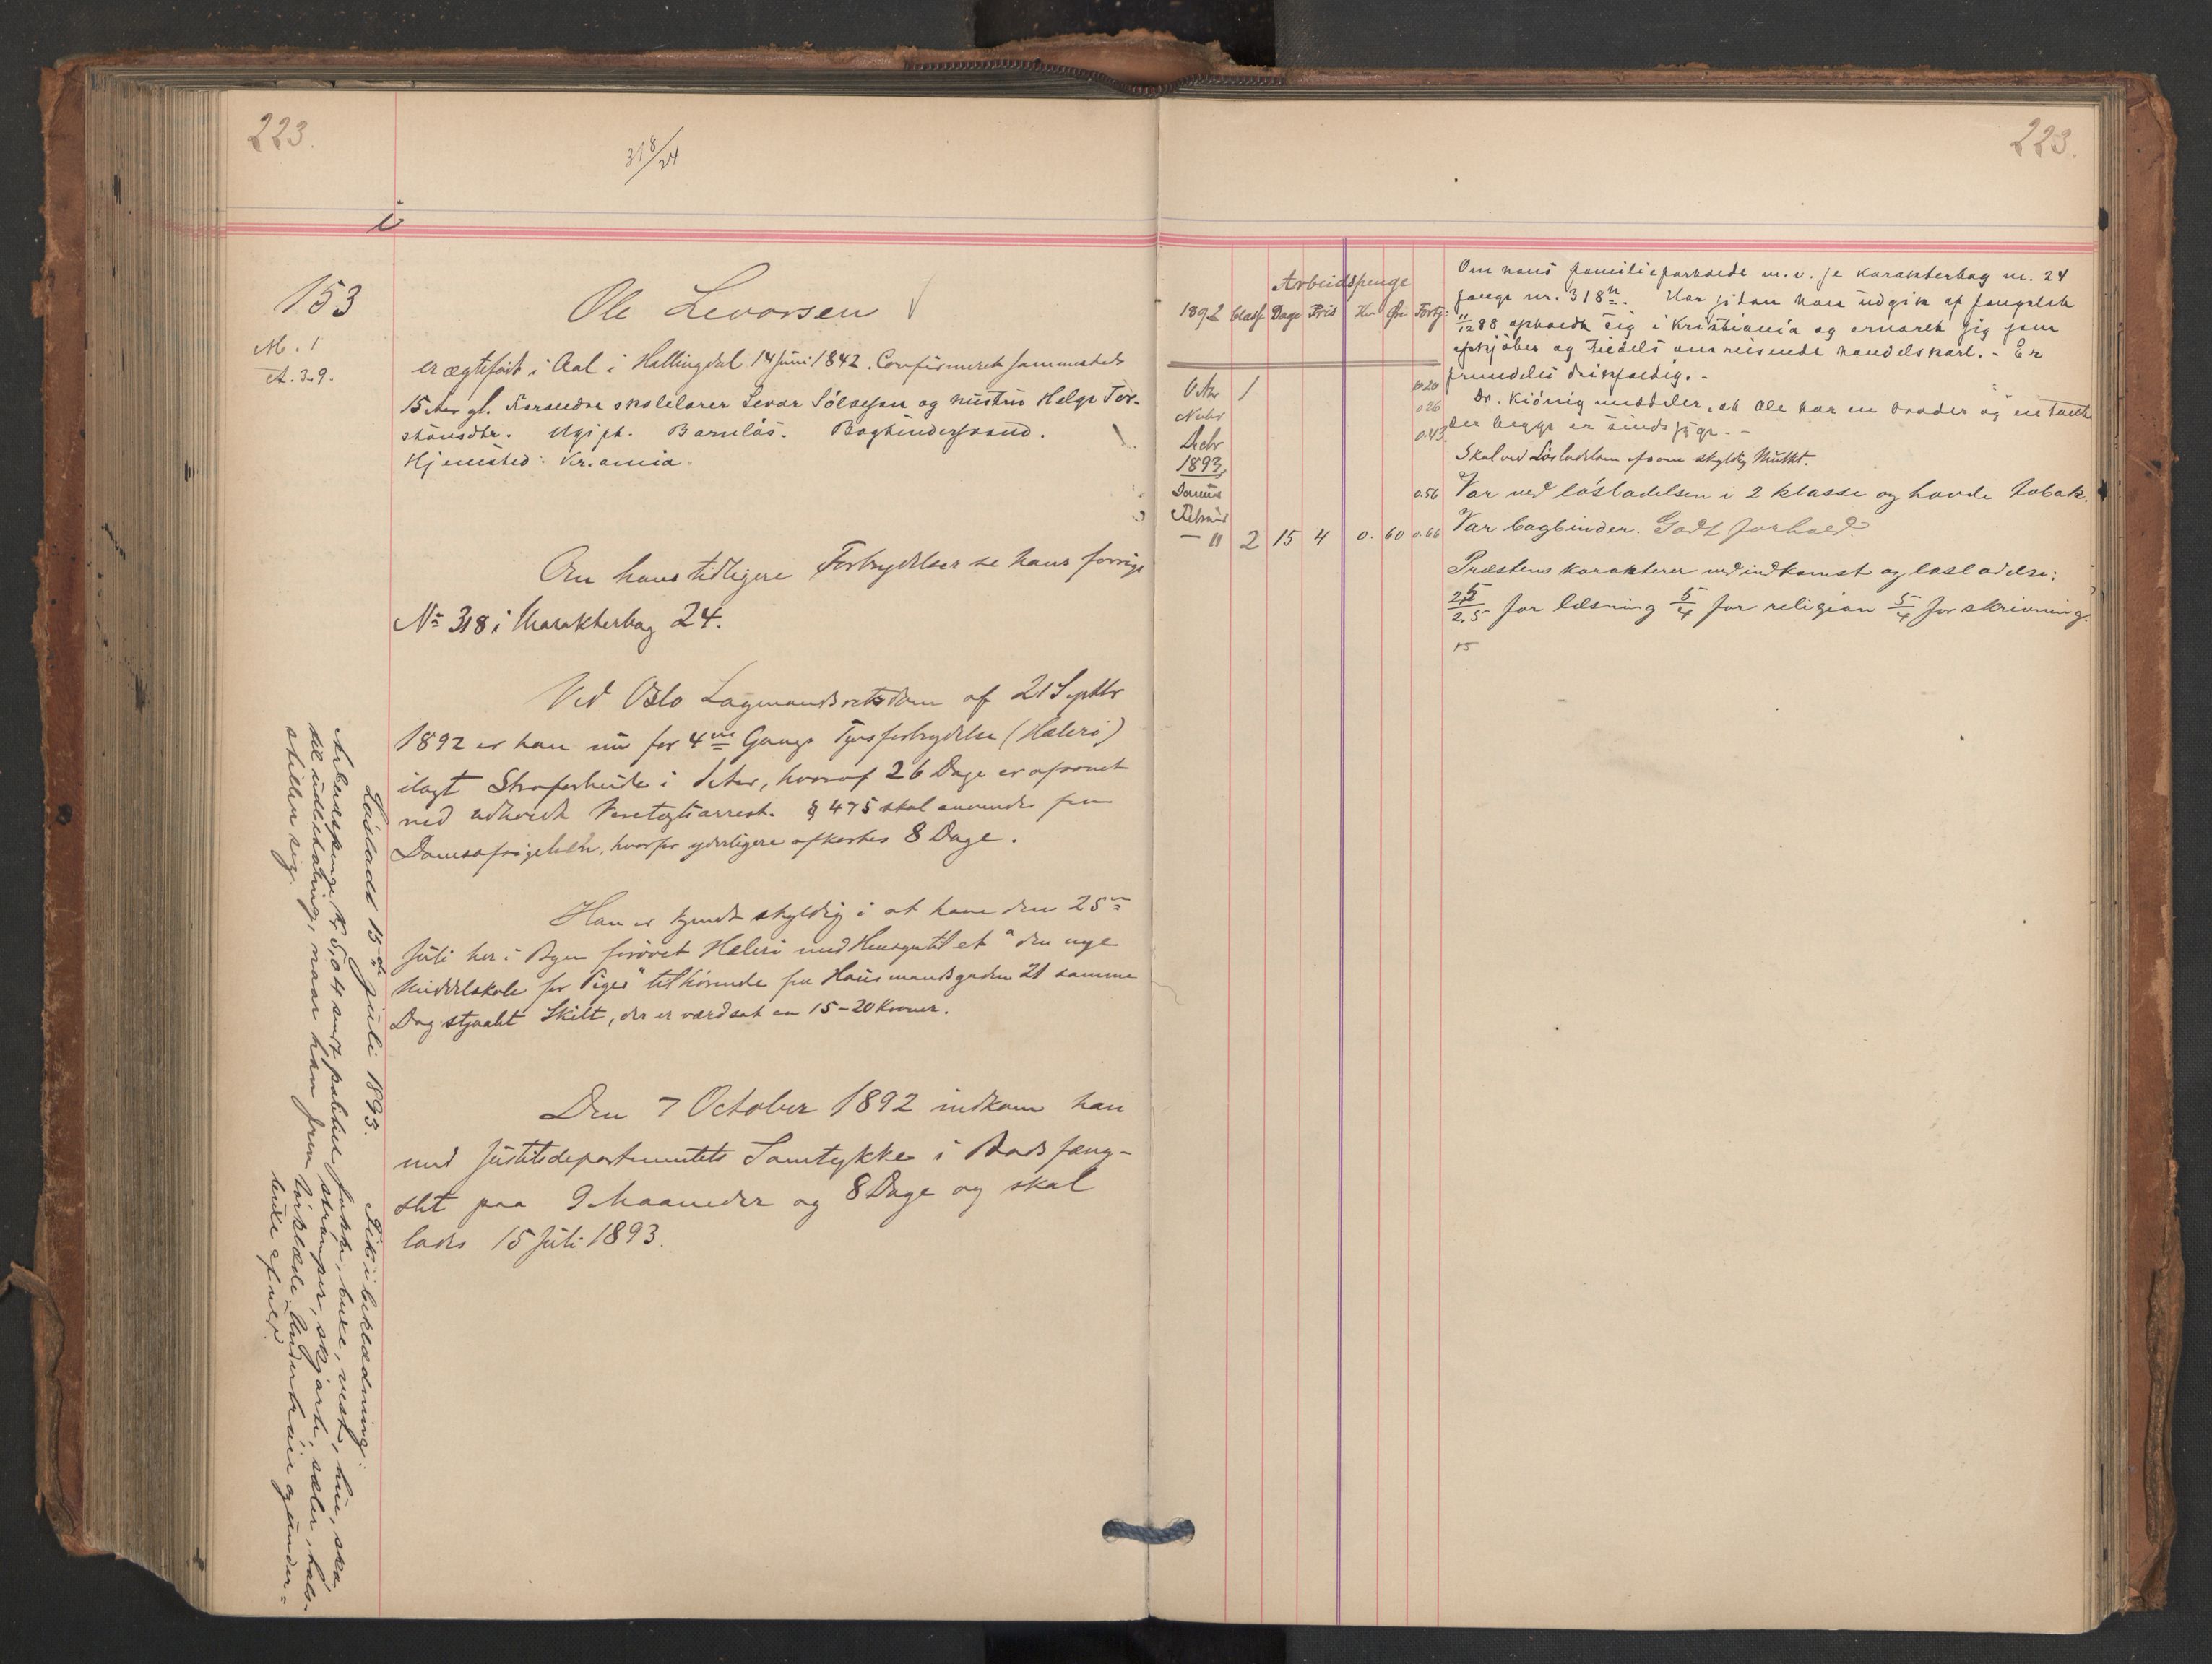 223.
318/24
i
153
M. 1
A. 39.
Ole Levorsen
er ægtefødt i Aal i Hallingdal 14 Juni 1842. Confirmeret sammesteds
15 Aar gl. Forældre skolelærer Levor Sølvesen og hustru Helge Tor-
stønsdtr. Ugift. Barnløs. Bogbindersvend.
Hjemsted: Kr.ania.
Om hans tidligere Forbrydelser se hans forrige
No 318 i Karakterbog 24.
Ved Oslo Lagmandsretsdom af 21 Septbr
1892 er han nu for 4de Gangs Tyvsforbrydelse (Hæleri)
ilagt Strafarbeide i 1 Aar, hvoraf 26 Dage er afsonet
ved udholdt Varetægtsarrest. § 475 skal anvendes fra
Domsafsigelsen, hvorfor yderligere afkortes 8 Dage.
Han er kjendt skyldig i at have den 25de
Juli her i Byen forøvet Hæleri med Hensyn til et "den nye
Middelskole for Piger" tilhørende fra Hausmandsgaden 21 samme
Dag stjaalet Skilt, der er værdsat til 15-20 Kroner.
Den 7 October 1892 indkom han
med Justitsdepartementets Samtykke i Bodsfæng-
slet paa 9 Maaneder og 8 Dage og skal
løslades 15 Juli 1893.
Løsladt 15de juli 1893.
Arbeidspenge Kr. 5,04 sendt politiet
til uddeling, naar han frem
stiller sig.
Fik i beklædning:
jakke, buxe, vest, hue, sko
strømper, skjorte, sæler, hals-
tørklæde, undertrøie og under=
buxe
223.
Arbeidspenge
1892 Classe Dage Pris Kr. Øre Fortj:
Octbr 1 0.20
Novbr 0.26
Decbr 0.43
1893
Januar 0.56
Februar
— 11 2 15 4 0. 60 0.66
Om hans familieforholde m. v. se karakterbog nr. 24
fange nr. 318. Har siden han udgik af fængslet
11/12 88 opholdt sig i Kristiania og ernæret sig som
opkjøber og tildels omreisende handelskarl. - Er
fremdeles drikfældig. -
Dr. Kiønig meddeler, at Ole har en broder og en tante
der begge er sindssyge. -
Skal ved Løsladelsen afsone skyldig Mulkt.
Var ved løsladelsen i 2 klasse og havde tobak.
Var bogbinder. Godt forhold.
Præstens karakterer ved indkomst og løsladelse:
2,5/2,5 for læsning 5/4 for religion 5/4 for skrivning.
15